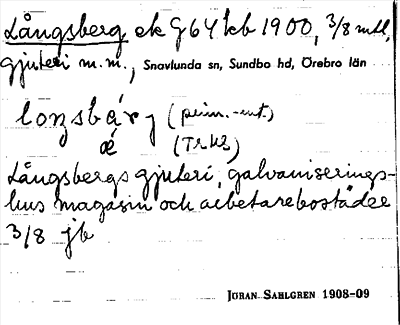 Långsberg ek G64 kb 1900, 3/8 mtl,
gjuteri m.m., Snavlunda sn, Sundbo hd, Örebro län
loŋsbárj (prim.-ut.)
ǽ (Trkz)
Långsbergs gjuteri, galvaniserings-
hus magasin och arbetarebostäder
3/8 jb
JÖRAN SAHLGREN 1908-09